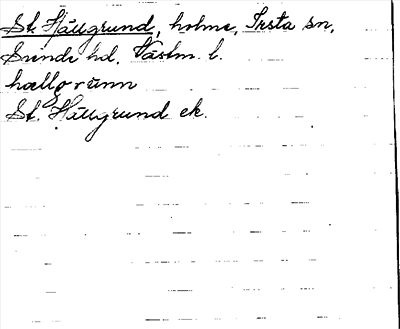 St. Hällgrund, holme, Irsta sn,
Siende hd. Västm. l.
hællgrünn
St. Hällgrund ek.